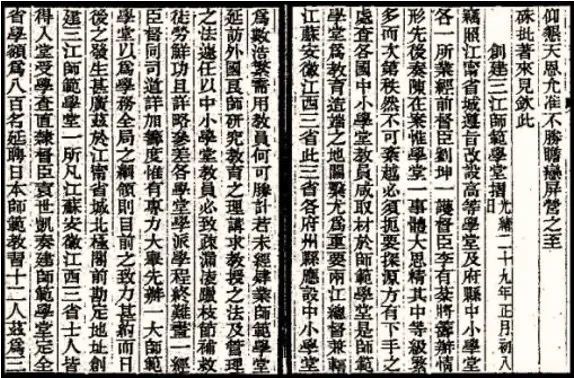 仰懇天恩允准不勝瞻戀屏營之至
硃批著來見欽此
創建三江師範學堂摺 光緒二十九年正月初八日
竊照江甯省城遵旨改設高等學堂及府縣中小學堂
各一所業經前督臣劉坤一護督臣李有棻將籌辦情
形先後奏陳在案惟學堂一事體大思精其中等級繁
多而次第秩然不可紊越必須扼要探源方有下手之
處查各國中小學堂教員咸取材於師範學堂是師範
學堂爲教育造端之地關繫尤爲重要兩江總督兼轄
江蘇安徽江西三省此三省各府州縣應設中小學堂
爲數浩繁需用教員何可勝計若未經肄業師範學堂
延訪外國良師研究教育之理講求教授之法及管理
之法遽任以中小學堂教員必致疏漏凌躐枝節補救
徒勞鮮功且詳略參差各學堂學派學程終難畫一經
臣督同司道詳加籌度惟有專力大舉先辦一大師範
學堂以爲學務全局之綱領則目前之致力甚約而日
後之發生甚廣茲於江甯省城北極閣前勘定地址創
建三江師範學堂一所凡江蘇安徽江西三省士人皆
得入堂受學查直隸督臣袁世凱奏建師範學堂定全
省學額爲八百名延聘日本師範教習十二人茲爲三